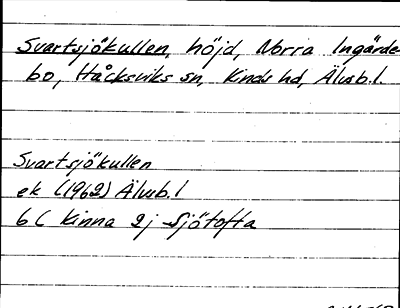 Svartsjökullen, höjd, Norra Ingärde-
bo, Håcksviks sn, Kinds hd, Älvsb.l.
Svartsjökullen
ek (1962) Älvsb.l
6C Kinna 2j Sjötofta